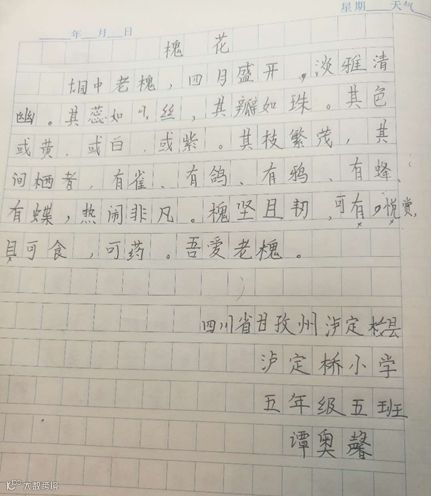 星期 天气
年 月 日
槐 花
坝中老槐，四月盛开，淡雅清
幽。其蕊如丝，其瓣如珠。其色
或黄、或白、或紫。其枝繁茂，其
间栖者，有雀、有鸽、有鸦、有蜂、
有蝶，热闹非凡。槐坚且韧，可有悦赏，
且可食，可药。吾爱老槐。
四川省甘孜州泸定县
泸定桥小学
五年级五班
谭奥馨